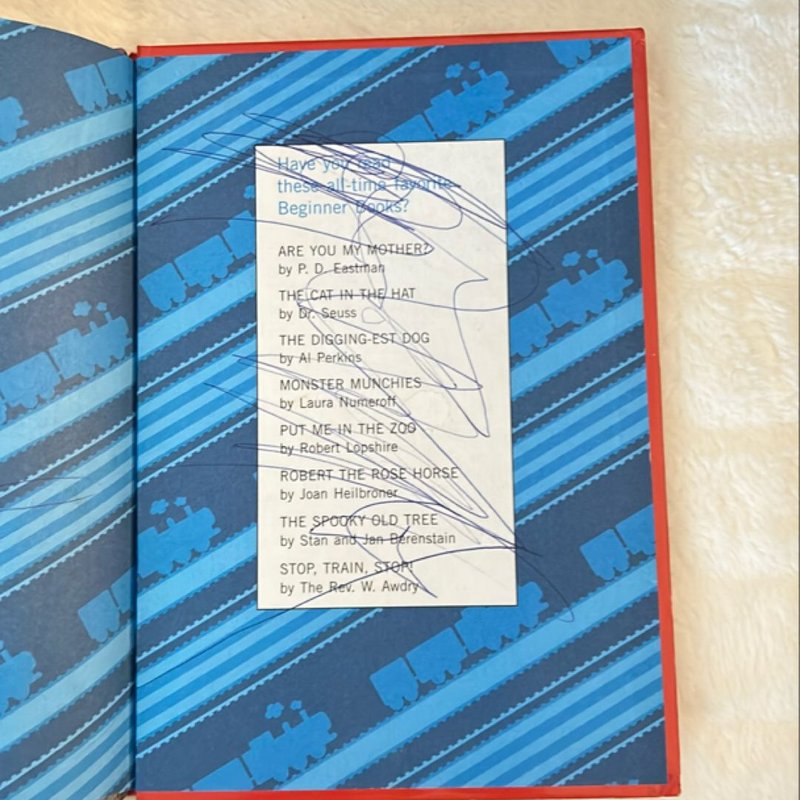 Have you read
these all-time favorite
Beginner Books?
ARE YOU MY MOTHER?
by P. D. Eastman
THE CAT IN THE HAT
by Dr. Seuss
THE DIGGING-EST DOG
by Al Perkins
MONSTER MUNCHIES
by Laura Numeroff
PUT ME IN THE ZOO
by Robert Lopshire
ROBERT THE ROSE HORSE
by Joan Heilbroner
THE SPOOKY OLD TREE
by Stan and Jan Berenstain
STOP, TRAIN, STOP!
by The Rev. W. Awdry